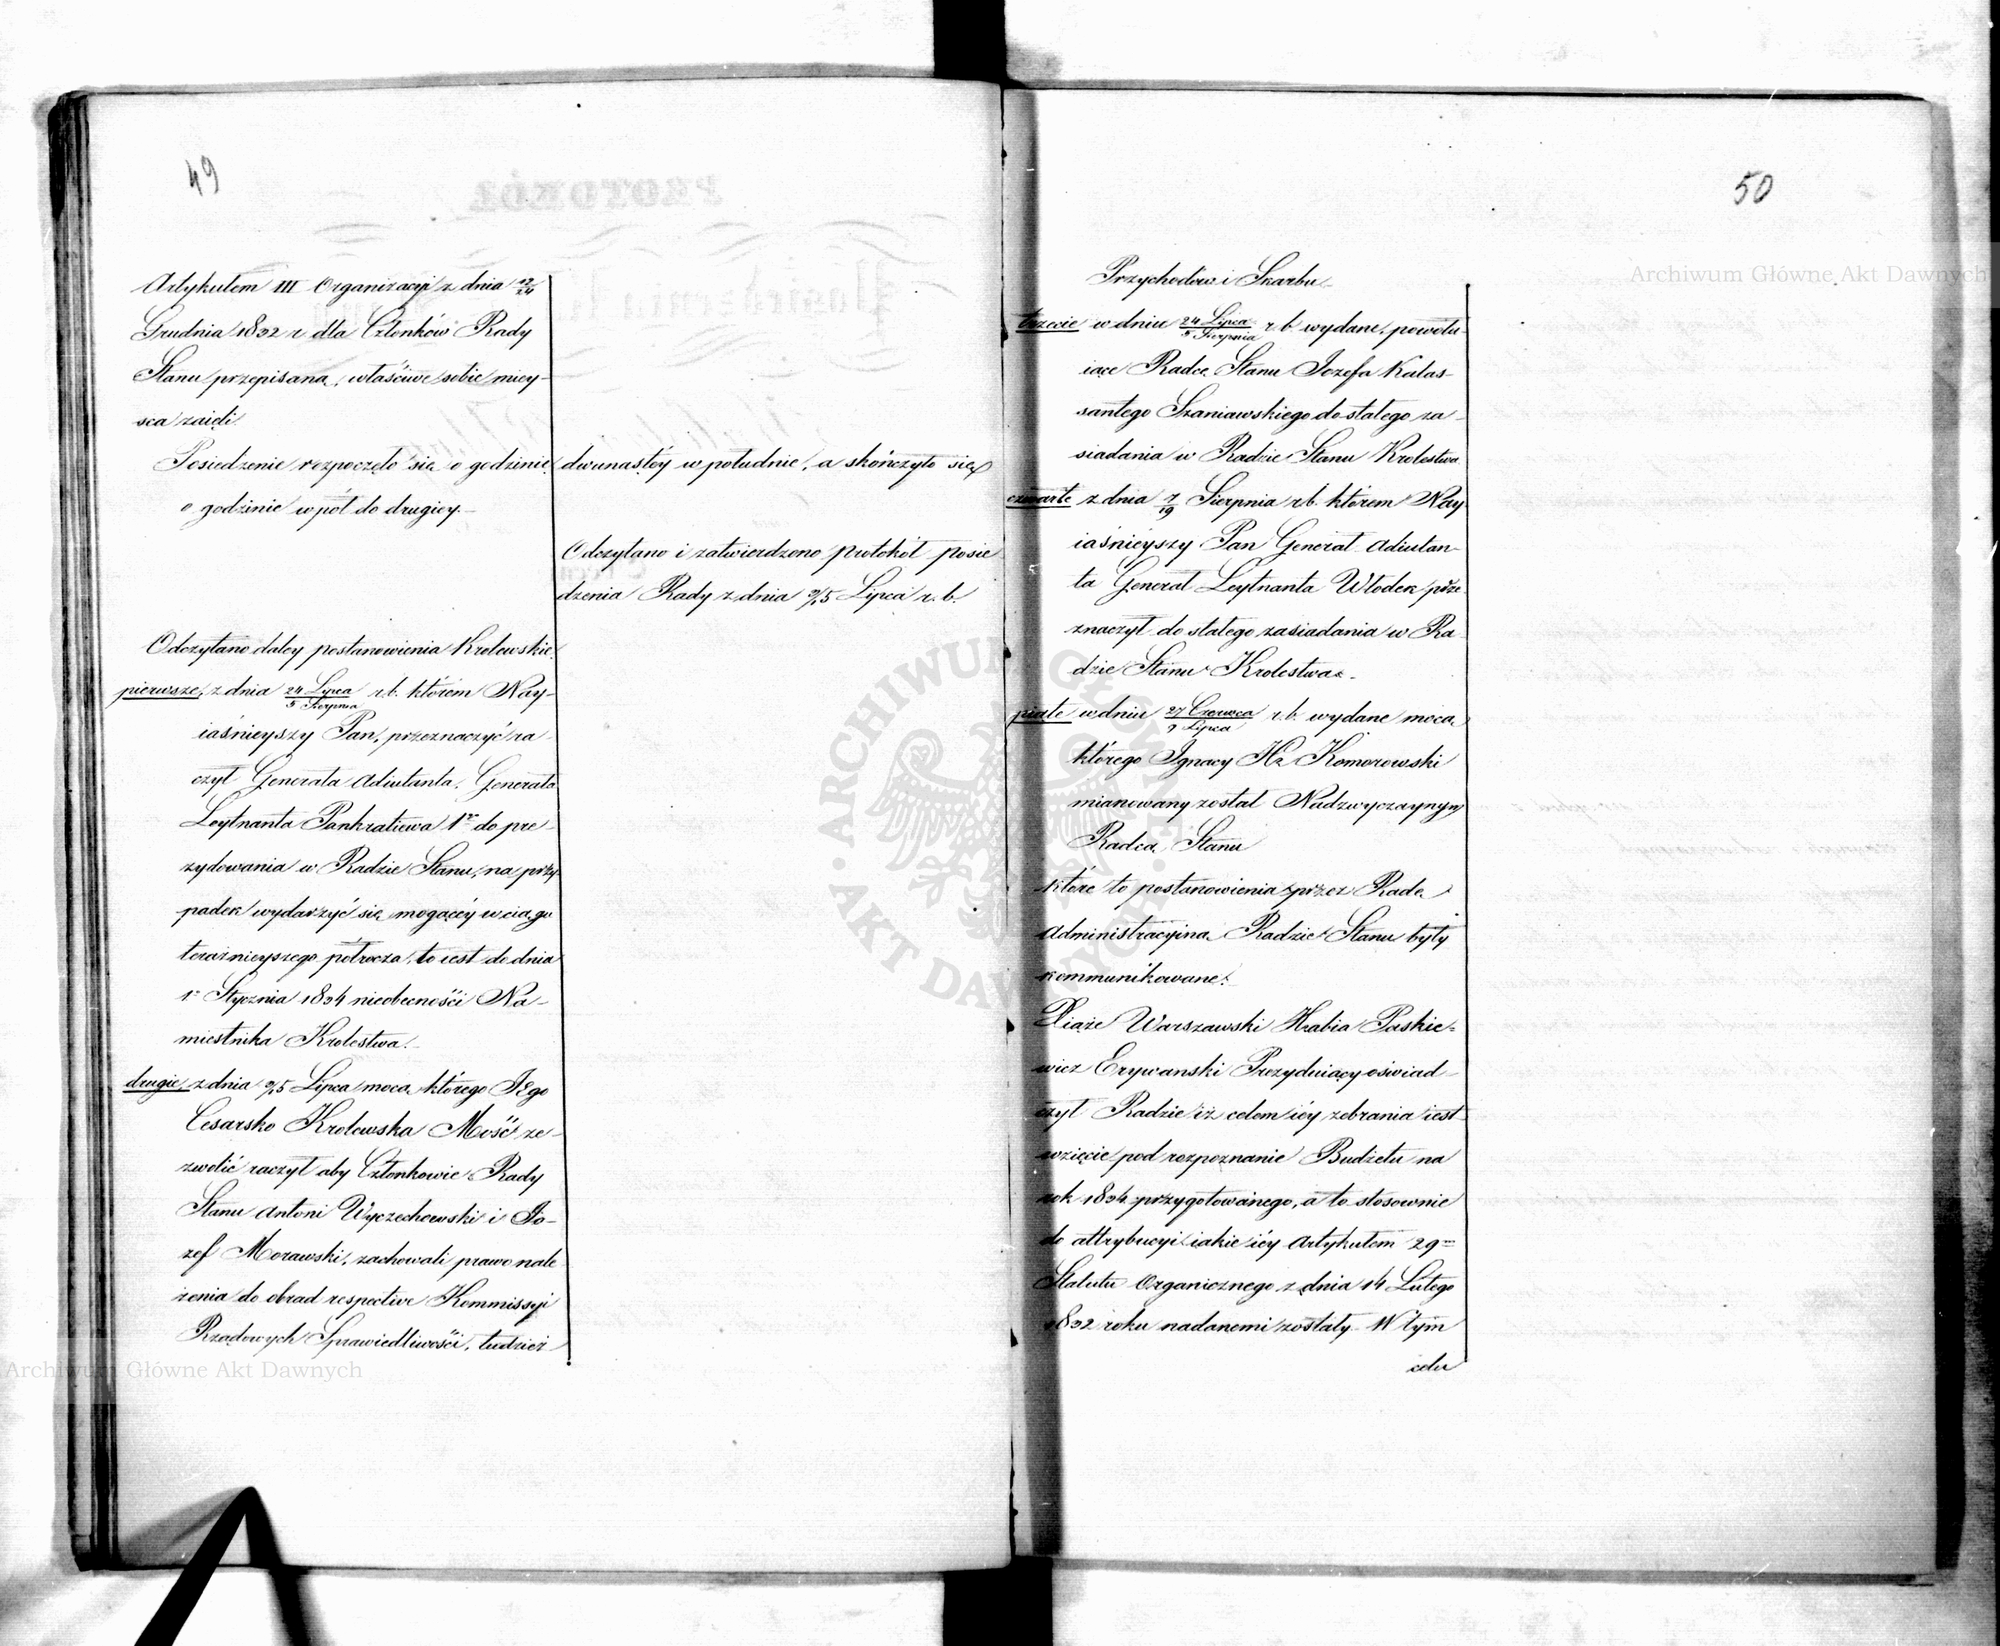 49
Artykułem III Organizacyi z dnia 12/24
Grudnia 1832 r. dla Członków Rady
Stanu przepisaną, właściwe sobie miey-
sca zaięli.
Posiedzenie rozpoczęło się o godzinie dwunastey w południe, a skończyło się
o godzinie w pół do drugiey.
Odczytano i zatwierdzono protokół posie
dzenia Rady z dnia 3/15 Lipca r. b.
Odczytano daley postanowienia Krolewskie
pierwsze, z dnia 24 Lipca/5 Sierpnia r. b. którém Nay-
iaśnieyszy Pan, przeznaczyć ra-
czył Generała Adiutanta, Generała
Leytnanta Pankratiewa 1o do pre-
zydowania w Radzie Stanu, na przy
padek wydarzyć się mogącéy w ciągu
teraźnieyszego półrocza, to iest do dnia
1o Stycznia 1834 nieobecności Na-
miestnika Krolestwa.
drugie z dnia 3/15 Lipca mocą którego JEgo
Cesarsko Krolewska Mość ze-
zwolić raczył aby Członkowie Rady
Stanu Antoni Wyczechowski i Jo-
zef Morawski, zachowali prawo nale
żenia do obrad respective Kommissyi
Rządowych Sprawiedliwości, tudzież
50
Przychodów i Skarbu.
trzecie w dniu 24 Lipca/5 Sierpnia r. b. wydane, powołu-
iące Radcę Stanu Jozefa Kalas-
santego Szaniawskiego do stałego za-
siadania w Radzie Stanu Krolestwa
czwarte z dnia 7/19 Sierpnia r. b. którém Nay
iaśnieyszy Pan Generał Adiutan-
ta Generał Leytnanta Włodek prze
znaczył do stałego zasiadania w Ra-
dzie Stanu Krolestwa.
piąte w dniu 27 Czerwca/9 Lipca r. b. wydane mocą
którego Ignacy Hr. Komorowski
mianowany został Nadzwyczaynym
Radcą Stanu
które to postanowienia przez Radę
Administracyiną Radzie Stanu były
kommunikowane.
Xiąże Warszawski Hrabia Paskie-
wicz Erywanski Prezyduiący oświad-
czył Radzie iż celem iéy zebrania iest
wzięcie pod rozpoznanie Budżetu na
rok 1834 przygotowanego, a to stosownie
do attrybucyi iakie iéy Artykułem 29m
Statutu Organicznego z dnia 14 Lutego
1832 roku nadanemi zostały. W tym
celu
Archiwum Główne Akt Dawnych
Archiwum Główne Akt Dawnych
ARCHIWUM GŁÓWNE AKT DAWNYCH